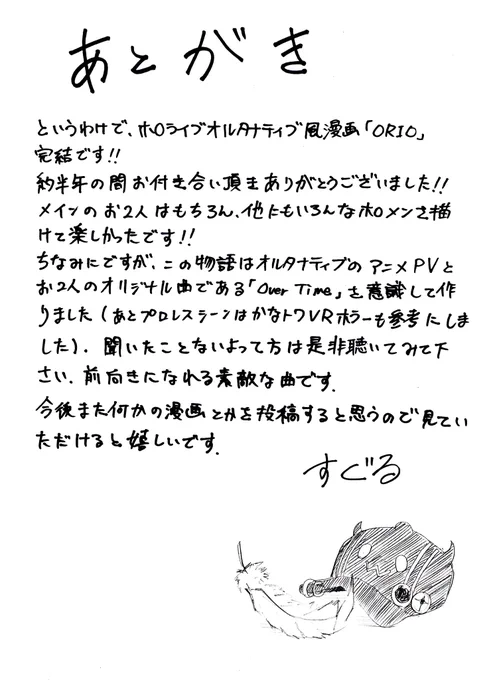 あとがき
というわけで、ホロライブオルタナティブ風漫画「ORIO」
完結です!!
約半年の間お付き合い頂きありがとうございました!!
メインのお2人はもちろん、他にもいろんなホロメンを描
けて楽しかったです!!
ちなみにですが、この物語はオルタナティブのアニメPVと
お2人のオリジナル曲である「Over Time」を意識して作
りました(あとプロレスシーンはかなトワVRホラーも参考にしま
した)。聞いたことないよって方は是非聴いてみて下
さい。前向きになれる素敵な曲です。
今後また何かの漫画とかを投稿すると思うので見てい
ただけると嬉しいです。
すぐる